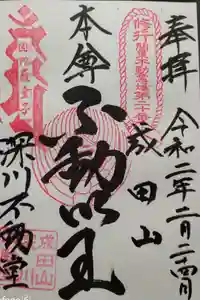 奉拝
令和二年二月二十四日
成田山
本尊
不動明王
深川不動堂
成田山